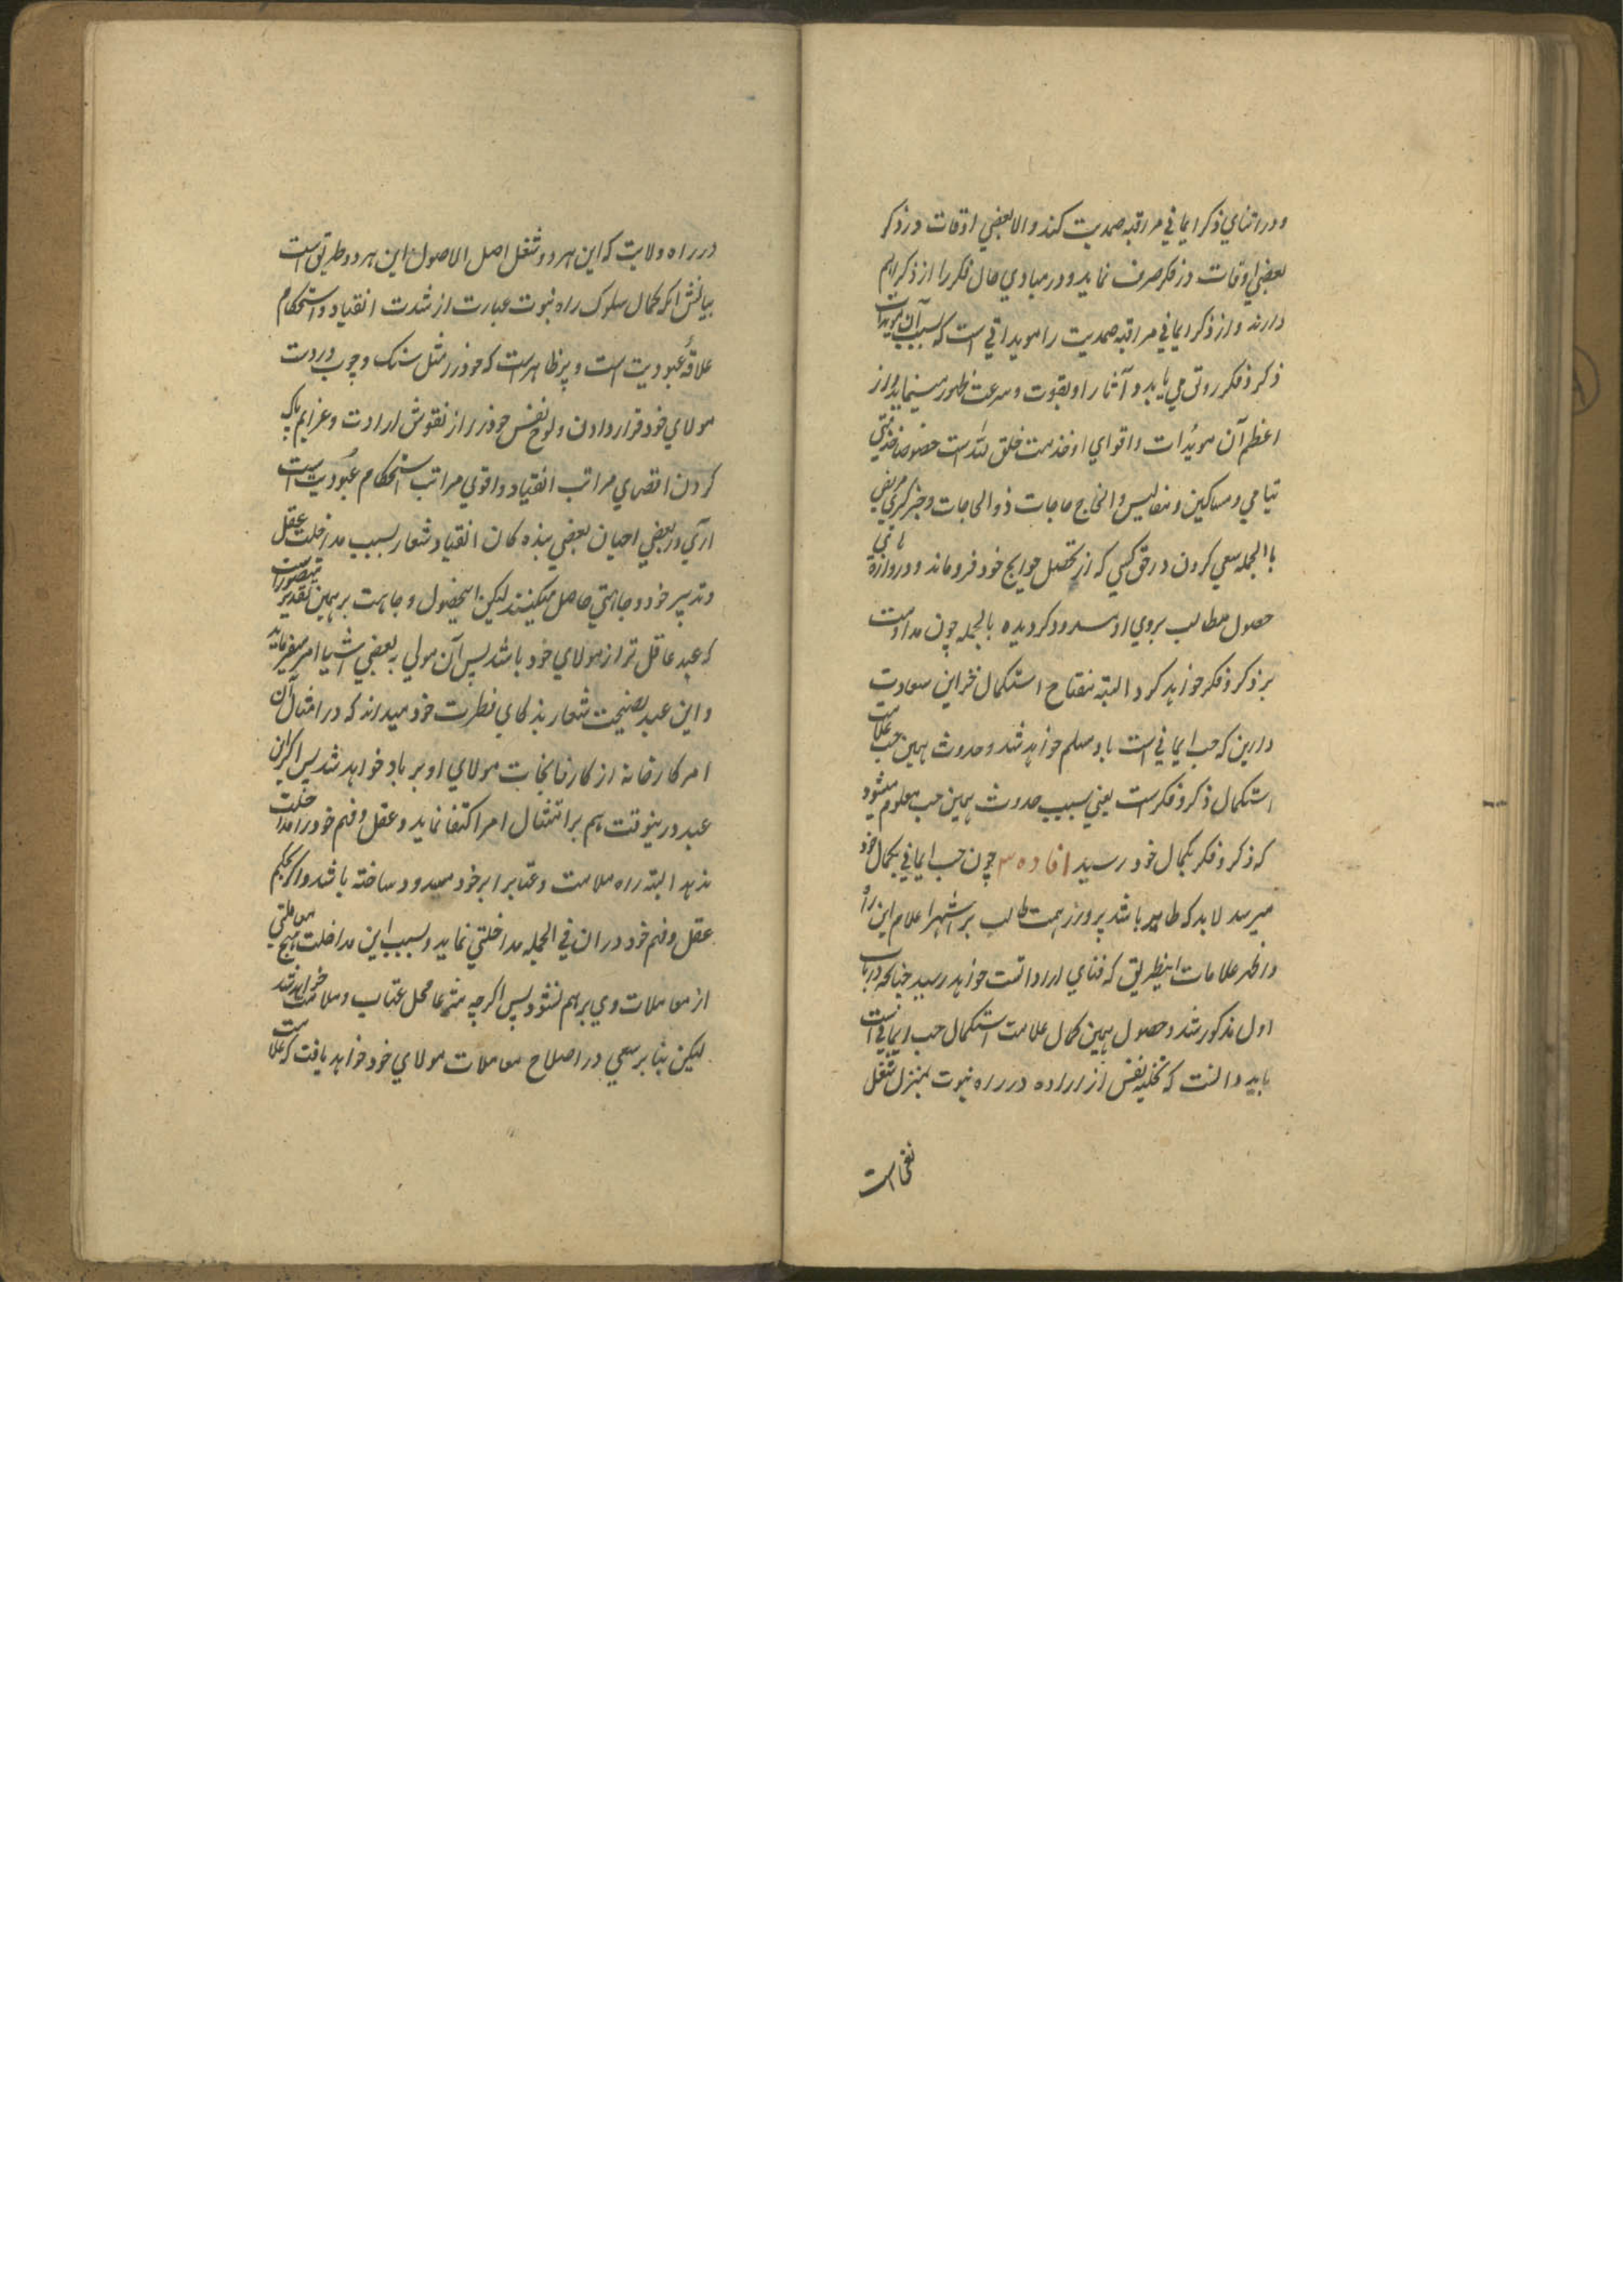 ودر اثنای ذکر ایمانی مراقبه صمدیت کند و الا بعضی اوقات در ذکر
بعضی اوقات در فکر صرف نماید و در مبادی حال فکر را از ذکر اهم
دارند و از ذکر ایمانی مراقبه صمدیت را مویداتی است که بسبب آن مویدات
ذکر و فکر رونق می یابد و آثار او بقوت و سرعت ظهور مینماید و از
اعظم آن مویدات و اقوای او خدمت خلق الله است خصوصا خدمت
یتامی و مساکین و مفالیس و انجاح حاجات ذوالحاجات و خبرگیری مریض
بالجمله سعی کردن در حق کسی که از تحصیل حوایج خود فرو ماند و دروازه
حصول مطالب بروی او مسدود گردیده بالجمله چون مداومت
بر ذکر و فکر خواهد کرد البته مفتاح استکمال خزاین سعادت
دارین که حب ایمانی است باو مسلم خواهد شد و حدوث همین حب علامت
استکمال ذکر و فکر است یعنی بسبب حدوث همین حب معلوم میشود
که ذکر و فکر بکمال خود رسید افاده ۳ چون حب ایمانی بکمال خود
میرسد لابد که طایر باشد پرواز همت طالب بر اشهر اعلام این راه
و اظهر علامات اینطریق که فنای ارادتست خواهد رسید چنانچه در باب
اول مذکور شد و حصول همین کمال علامت استکمال حب ایمانی است
باید دانست که تخلیه نفس از اراده در راه نبوت بمنزل شغل
نفی است
در راه ولایت که این هر دو شغل اصل الاصول این هر دو طریق است
بیانش آنکه کمال سلوک راه نبوت عبارت از شدت انقیاد و استحکام
علاقهٔ عبودیت است و پر ظاهر است که خود را مثل سنگ و چوب در دست
مولای خود قرار دادن و لوح نفس خود را از نقوش ارادت و عزایم پاک
کردن اقصای مراتب انقیاد و اقوی مراتب استحکام عبودیت است
آری در بعضی احیان بعضی بنده کان انقیاد شعار بسبب مداخلت عقل
و تدبیر خود وجاهتی حاصل میکنند لیکن حصول وجاهت بر همین تقدیر متصور است
که عبد عاقل تر از مولای خود باشد پس آن مولی به بعضی اشیا امر میفرماید
و این عبد نصیحت شعار بذکای فطرت خود میداند که در امتثال آن
امر کارخانه از کارخانجات مولای او برباد خواهد شد پس اگر این
عبد درینوقت هم بر امتثال امر اکتفا نماید و عقل و فهم خود را مداخلت
ندهد البته راه ملامت و عتاب را بر خود مسدود ساخته باشد و اگر بحکم
عقل و فهم خود در ان فی الجمله مداخلتی نماید و بسبب این مداخلت هیچ معاملتی
از معاملات وی برهم نشود پس اگر چه محل عتاب و ملامت خواهد شد
لیکن بنا بر سعی در اصلاح معاملات مولای خود خواهد یافت که علامت